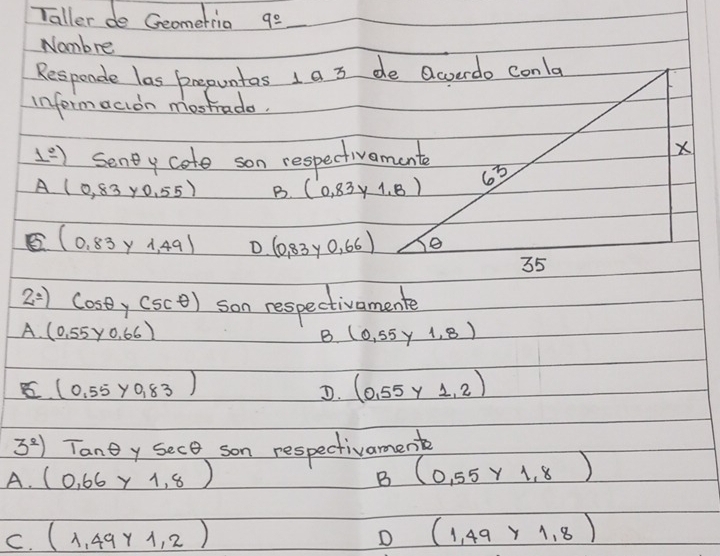 Taller de Geometria 9º
Nombre
Responde las preguntas 1 a 3 de acuerdo con la
información mostrada.
1º) Senθ y cotθ son respectivamente
A (0,83 y 0,55) B. (0,83 y 1.8)
C. (0,83 y 1,49) D. (0,83 y 0,66)
63
x
θ
35
2º) Cosθ y Cscθ) son respectivamente
A. (0,55 y 0,66) B. (0,55 y 1,8)
C. (0,55 y 0,83) D. (0,55 y 1,2)
3º) Tanθ y Secθ son respectivamente
A. (0,66 y 1,8) B (0,55 y 1,8)
C. (1,49 y 1,2) D (1,49 y 1,8)